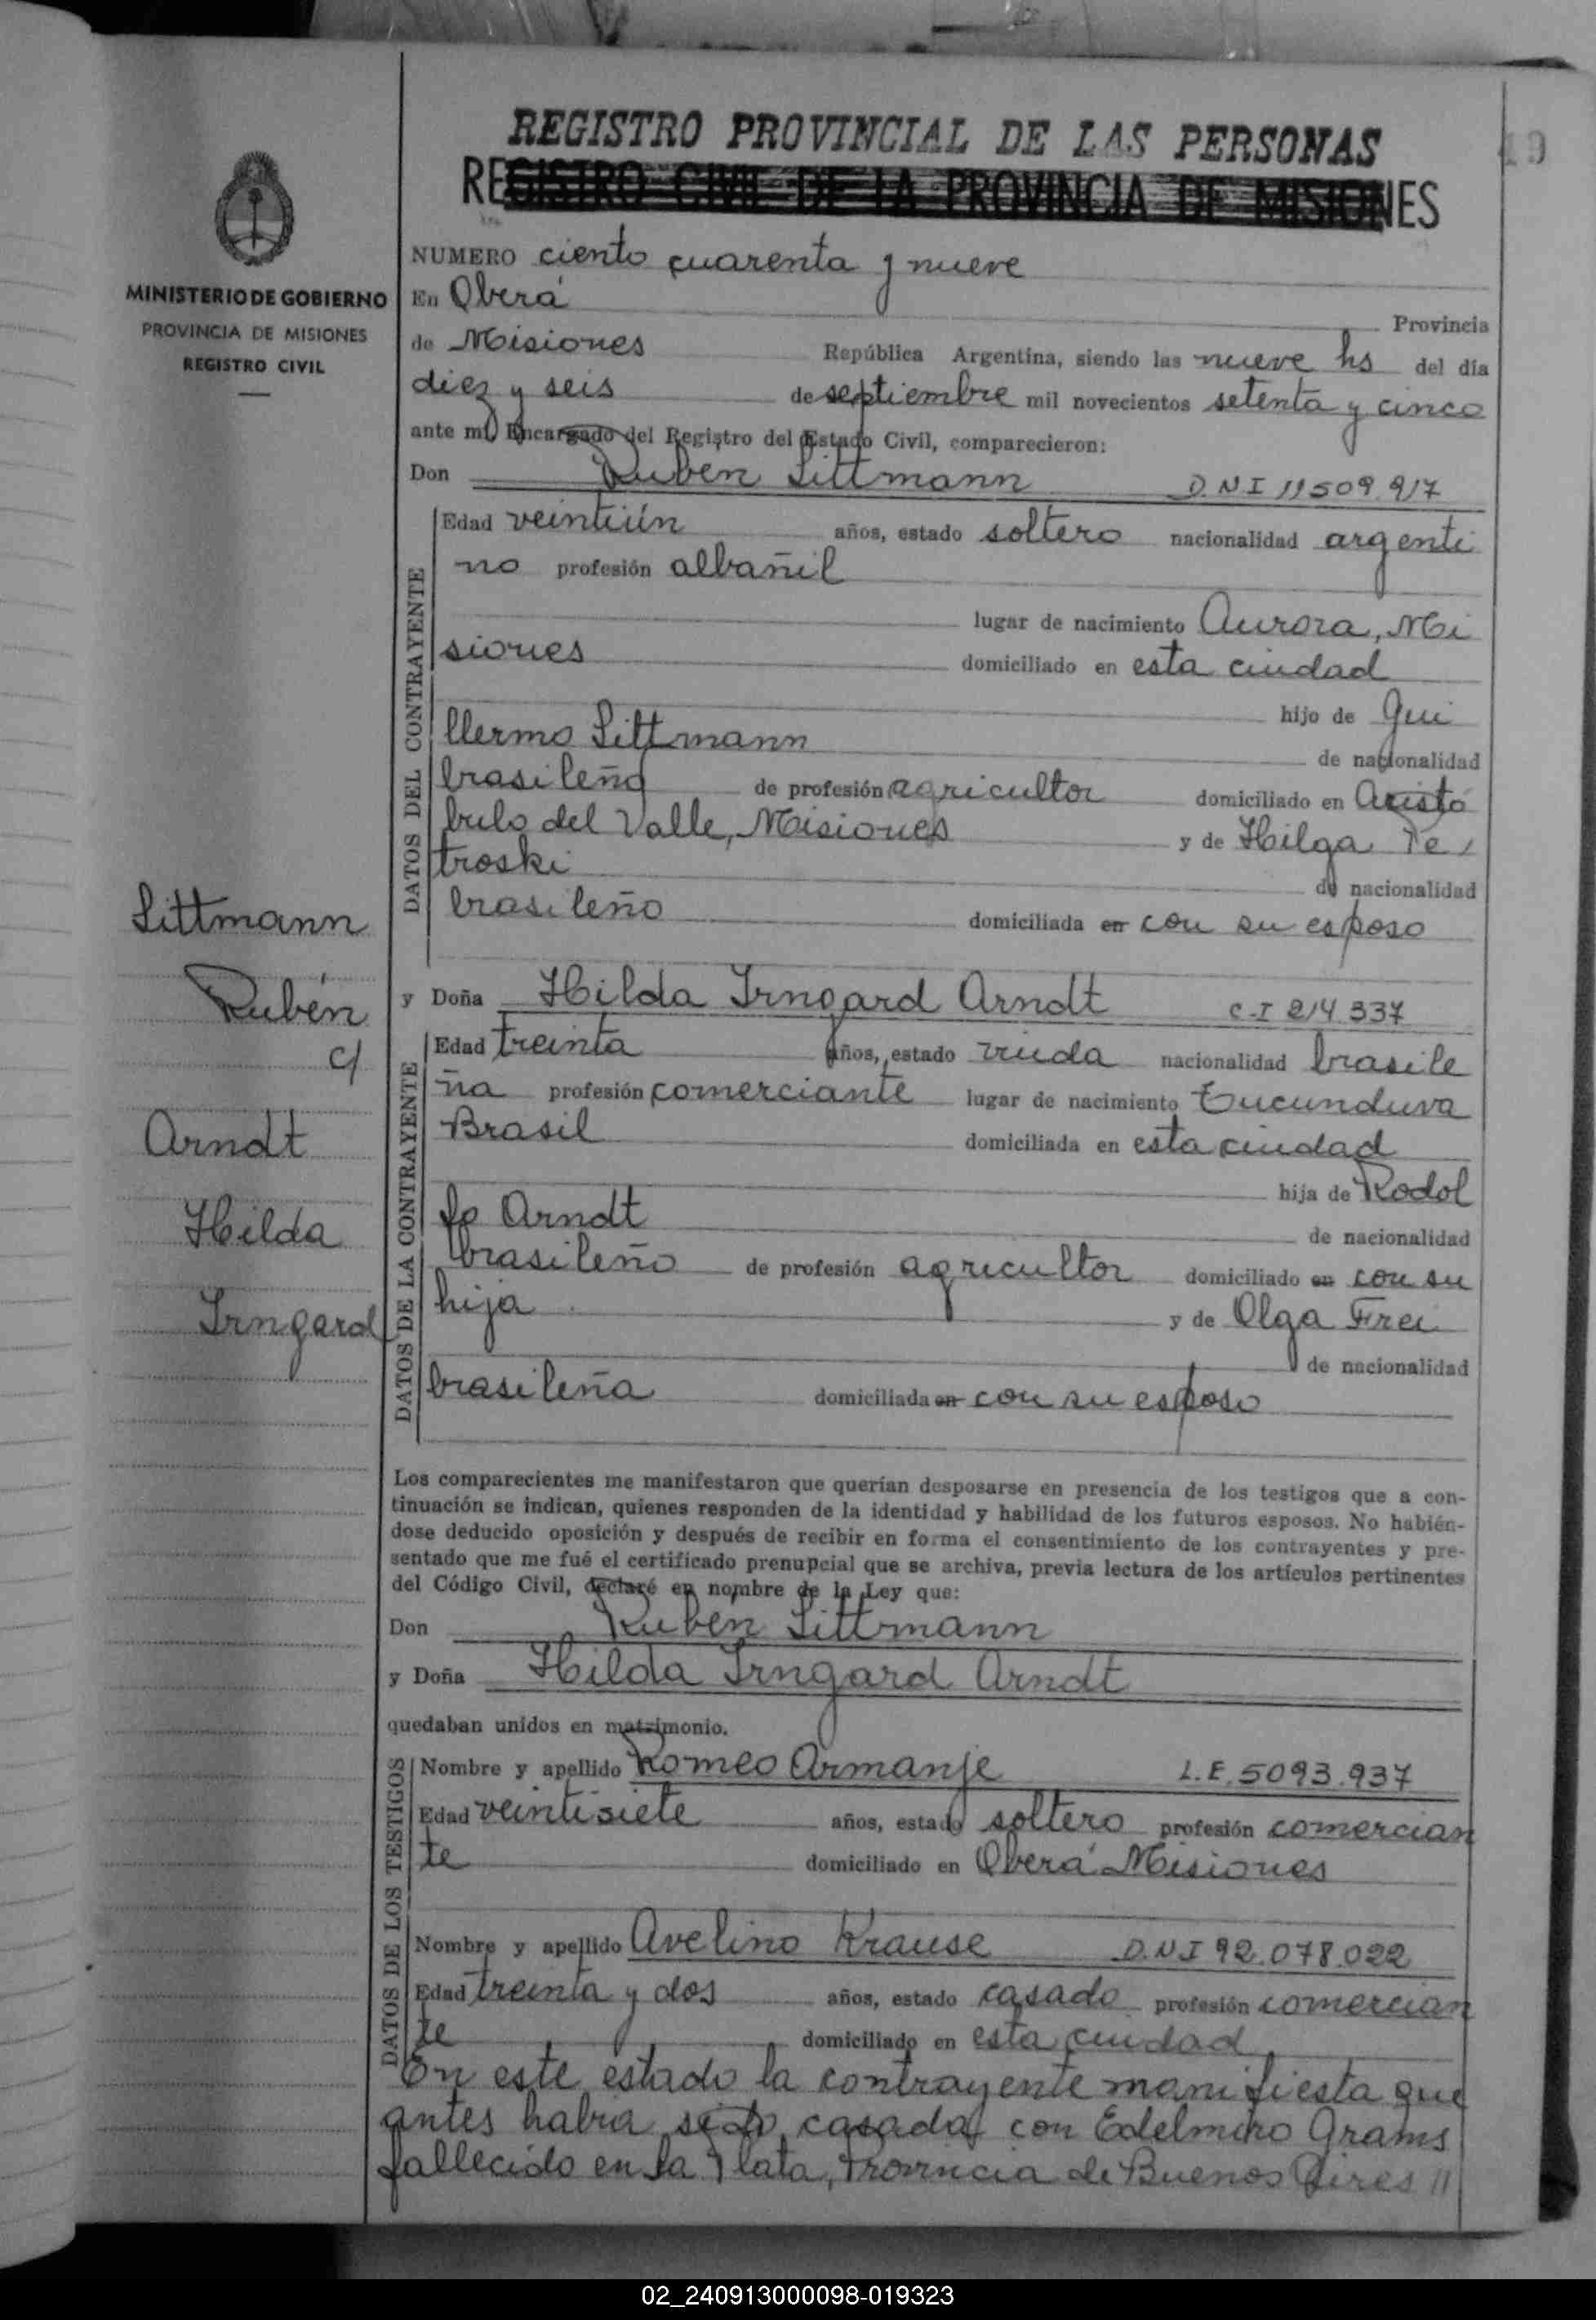 REGISTRO PROVINCIAL DE LAS PERSONAS
49
REGISTRO CIVIL DE LA PROVINCIA DE MISIONES
MINISTERIO DE GOBIERNO
PROVINCIA DE MISIONES
REGISTRO CIVIL
NUMERO ciento cuarenta y nueve
En Oberá
Provincia
de Misiones República Argentina, siendo las nueve hs del día
diez y seis de septiembre mil novecientos setenta y cinco
ante mí, Encargado del Registro del Estado Civil, comparecieron:
Don Rubén Littmann D.N.I 11509.917
DATOS DEL CONTRAYENTE
Edad veintiún años, estado soltero nacionalidad argenti
no profesión albañil
lugar de nacimiento Aurora, Mi
siones domiciliado en esta ciudad
hijo de Gui
llermo Littmann de nacionalidad
brasileño de profesión agricultor domiciliado en Aristó
bulo del Valle, Misiones y de Hilga Pe
troski de nacionalidad
brasileño domiciliada en con su esposo
Littmann
Rubén
c/
Arndt
Hilda
Irngard
y Doña Hilda Irngard Arndt C.I 214.337
DATOS DE LA CONTRAYENTE
Edad treinta años, estado viuda nacionalidad brasile
ña profesión comerciante lugar de nacimiento Tucunduva
Brasil domiciliada en esta ciudad
hija de Rodol
fo Arndt de nacionalidad
brasileño de profesión agricultor domiciliado en con su
hija y de Olga Frei
de nacionalidad
brasileña domiciliada en con su esposo
Los comparecientes me manifestaron que querían desposarse en presencia de los testigos que a con-
tinuación se indican, quienes responden de la identidad y habilidad de los futuros esposos. No habién-
dose deducido oposición y después de recibir en forma el consentimiento de los contrayentes y pre-
sentado que me fué el certificado prenupcial que se archiva, previa lectura de los artículos pertinentes
del Código Civil, declaré en nombre de la Ley que:
Don Rubén Littmann
y Doña Hilda Irngard Arndt
quedaban unidos en matrimonio.
DATOS DE LOS TESTIGOS
Nombre y apellido Romeo Armanje L.E. 5093.937
Edad veintisiete años, estado soltero profesión comercian
te domiciliado en Oberá Misiones
Nombre y apellido Avelino Krause D.N.I 92.078.022
Edad treinta y dos años, estado casado profesión comercian
te domiciliado en esta ciudad
En este estado la contrayente manifiesta que
antes habia sido casada con Edelmiro Grams
fallecido en La Plata, Provincia de Buenos Aires //
02_240913000098-019323